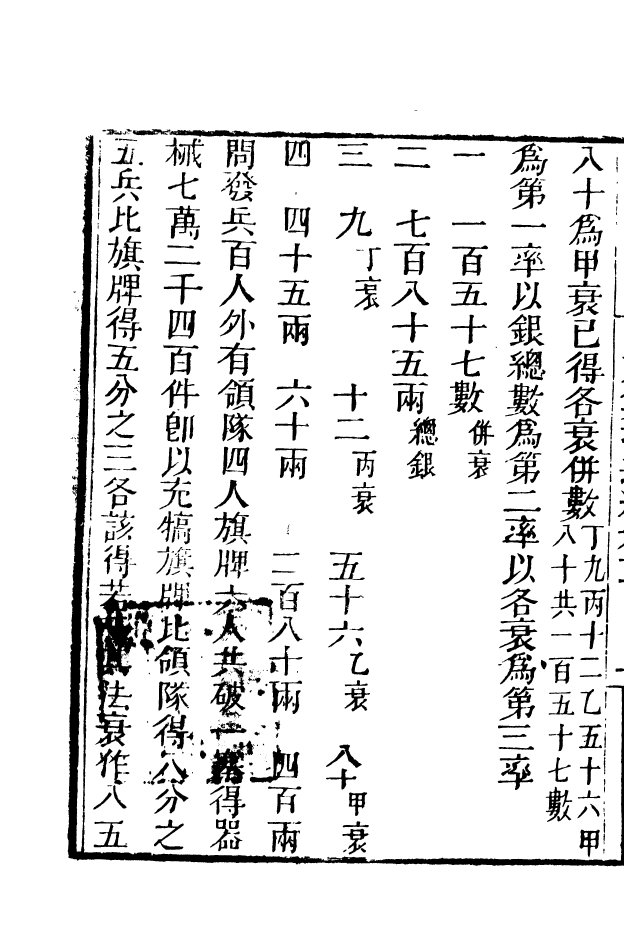 八十爲甲衰已得各衰併數丁九丙十二乙五十六甲八十共一百五十七數
爲第一率以銀總數爲第二率以各衰爲第三率
一 一百五十七數 併衰
二 七百八十五兩 總銀
三 九丁衰 十二丙衰 五十六乙衰 八十甲衰
四 四十五兩 六十兩 二百八十兩 四百兩
問發兵百人外有領隊四人旗牌六人共破一 得器
械七萬二千四百件卽以充犒旗牌比領隊得八分之
五兵比旗牌得五分之三各該得若 法衰作八五